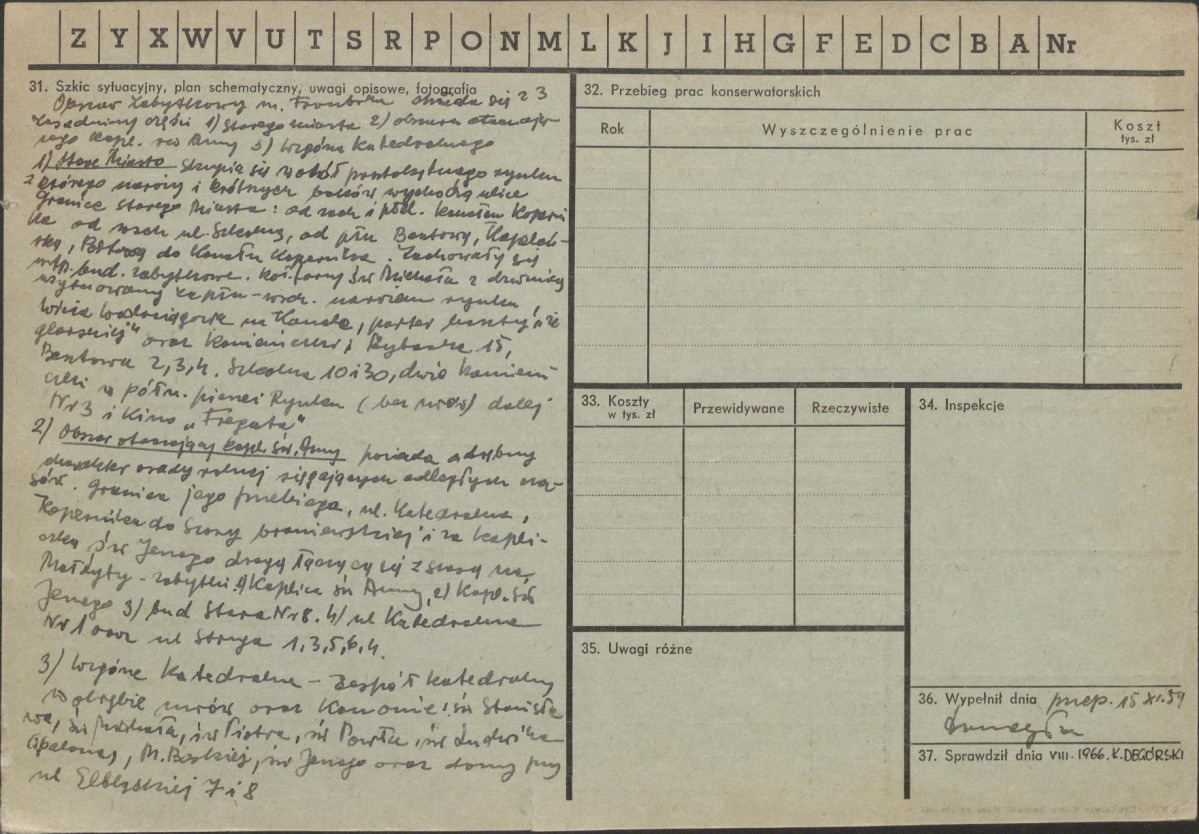 Z Y X W V U T S R P O N M L K J I H G F E D C B A Nr
31. Szkic sytuacyjny, plan schematyczny, uwagi opisowe, fotografia
Obszar zabytkowy m. Fromborka składa się z 3
zasadniczych części 1) Starego Miasta 2) obszaru otaczają-
cego kapl. św Anny 3) Wzgórza Katedralnego
1) Stare Miasto skupia się wokół prostokątnego rynku
z którego naroży i krótszych boków wychodzą ulice
Granice Starego Miasta: od zach i płd. kanałem Koperni
ka od wsch ul. Szkolną, od płn Basztową, Kapelań-
ską, Portową do Kanału Kopernika. Zachowały się
nstp. bud. zabytkowe. Koś. farny św Michała z dzwonicą
usytuowany za płn-wsch. narożem rynku,
Wieża Wodociągowa n. Kanałe, parter baszty „że
glarskiej" oraz kamieniczki: Rybacka 15,
Basztowa 2,3,4. Szkolna 10 i 30, dwie kamieni
czki w półn. pierzei Rynku (bez nrów) dalej
Nr 3 i Kino „Fregata"
2) Obszar otaczający kapl. św. Anny posiada odrębny
charakter osady rolnej sięgających odległych cza-
sów. Granica jego przebiega, ul. Katedralna,
Kopernika do Szosy braniewskiej i za kapli-
czką św Jerzego drogą łączącą się z szosą na
Małdyty - zabytki: 1) Kaplica św Anny, 2) Kapl. św
Jerzego 3) bud Stara Nr 8. 4) ul Katedralna
Nr 1 oraz ul Struga 1,3,5,6,4.
3) Wzgórze Katedralne - Zespół katedralny
w obrębie murów oraz Kanonie: św Stanisła
wa, św Michała, św Piotra, św Pawła, św Ludwika
(spalona), M. Boskiej, św Jerzego oraz domy przy
ul Elbląskiej 7 i 8
32. Przebieg prac konserwatorskich
Rok Wyszczególnienie prac Koszt
tys. zł
33. Koszty
w tys. zł Przewidywane Rzeczywiste
34. Inspekcje
35. Uwagi różne
36. Wypełnił dnia przep. 15 XI.59
37. Sprawdził dnia VIII. 1966. K. DEGÓRSKI